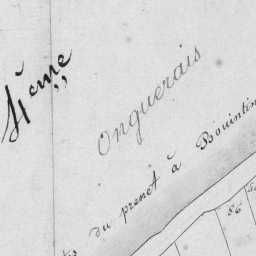 4ème
Onguerais
du prenot à Bouintin
56